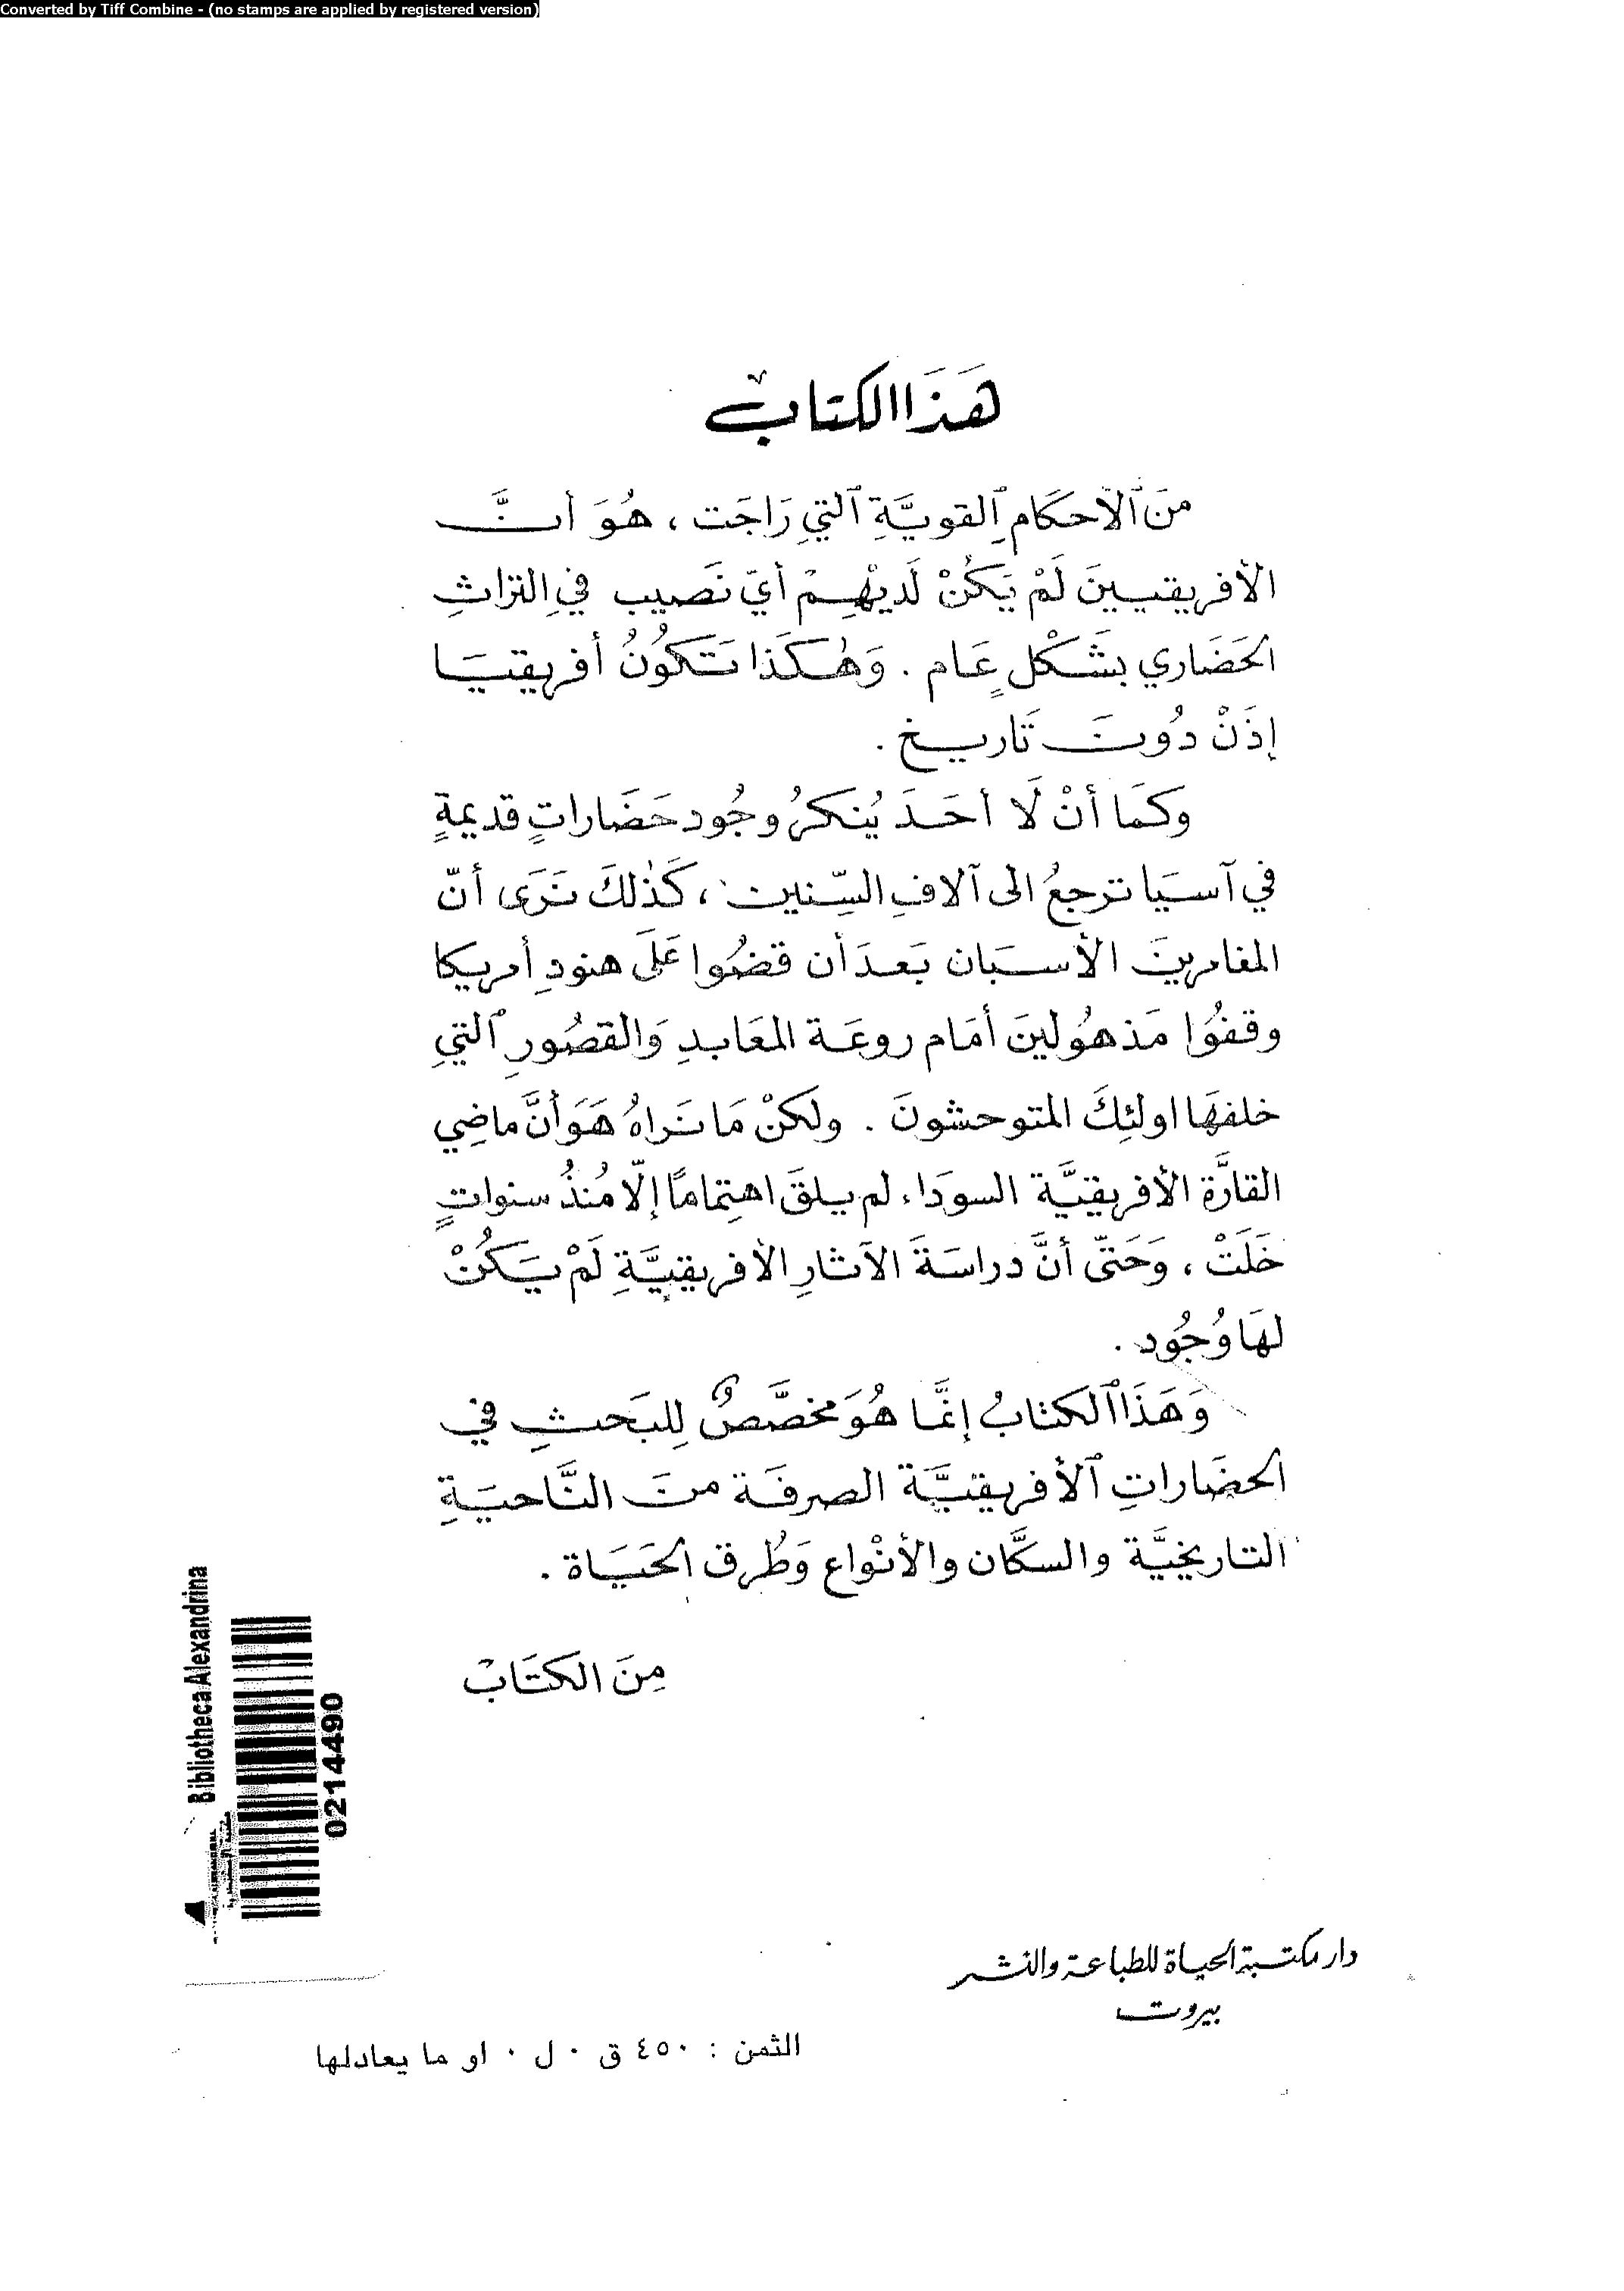 Converted by Tiff Combine - (no stamps are applied by registered version)
هَذَا الكتابْ
منَ ٱلأحكَامِ ٱلقويَّةِ ٱلتي رَاجَت ، هُوَ أنَّ
الأفريقيينَ لَمْ يَكُنْ لَديْهِمْ أيّ نَصيب في التراثِ
الحَضَاري بشَكْلٍ عَام . وَهٰكَذَا تَكُونُ أفريقيَا
إذَنْ دُونَ تَاريخ .
وكَمَا أنْ لَا أحَدَ يُنكرُ وجُود حَضَاراتٍ قديمةٍ
في آسيَا ترجعُ الى آلافِ السِّنين ، كَذٰلكَ نَرَى أنّ
المغامرينَ الأسبَان بَعدَ أن قضُوا عَلَى هنودِ أمريكا
وقفُوا مَذهُولينَ أمَام روعَة المعَابدِ وَالقصُورِ ٱلتي
خلفهَا اولئِكَ المتوحشونَ . ولكنْ مَا نَراهُ هَوَ أنَّ ماضِي
القارَّة الأفريقيَّة السودَاء لم يلقَ اهتِمامًا إلّا مُنذُ سنواتٍ
خَلَتْ ، وَحَتّى أنَّ دراسَةَ الآثارِ الأفريقيَّةِ لَمْ يَكُنْ
لهَا وُجُود .
وَهَذَا ٱلكتابُ إنمَّا هُوَ مخصَّصٌ لِلبَحثِ في
الحضَاراتِ ٱلأفريقيَّة الصرفَة منَ النَّاحيَةِ
التاريخيَّة والسكَّان والأنْواع وَطُرق الحَيَاة .
مِنَ الكتَابْ
Bibliotheca Alexandrina
0214490
دار مكتبة الحياة للطباعة والنشر
بيروت
الثمن : ٤٥٠ ق ٠ ل ٠ او ما يعادلها